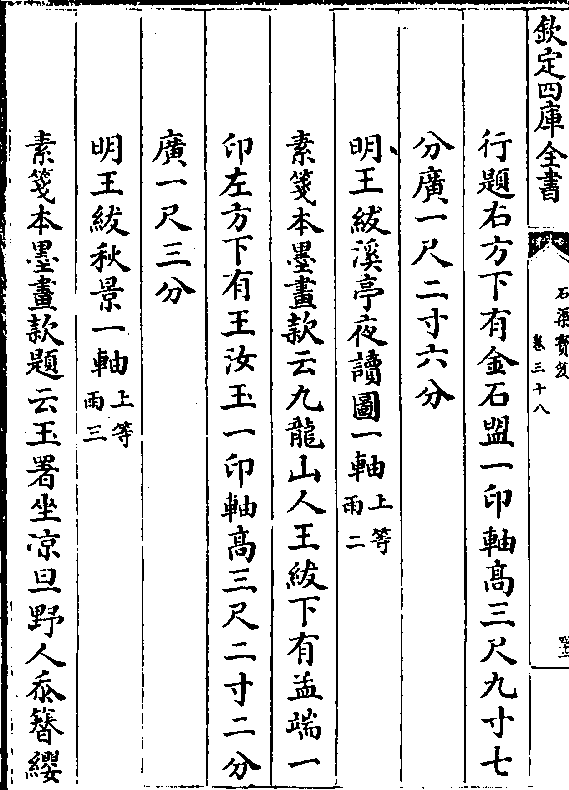 欽定四庫全書
石渠寳笈
卷三十八
行題右方下有金石盟一印軸髙三尺九寸七
分廣一尺二寸六分
明王紱溪亭夜讀圖一軸上等雨二
素箋本墨畫款云九龍山人王紱下有孟端一
印左方下有王汝玉一印軸髙三尺二寸二分
廣一尺三分
明王紱秋景一軸上等雨三
素箋本墨畫款題云玉署坐凉旦野人忝簪纓